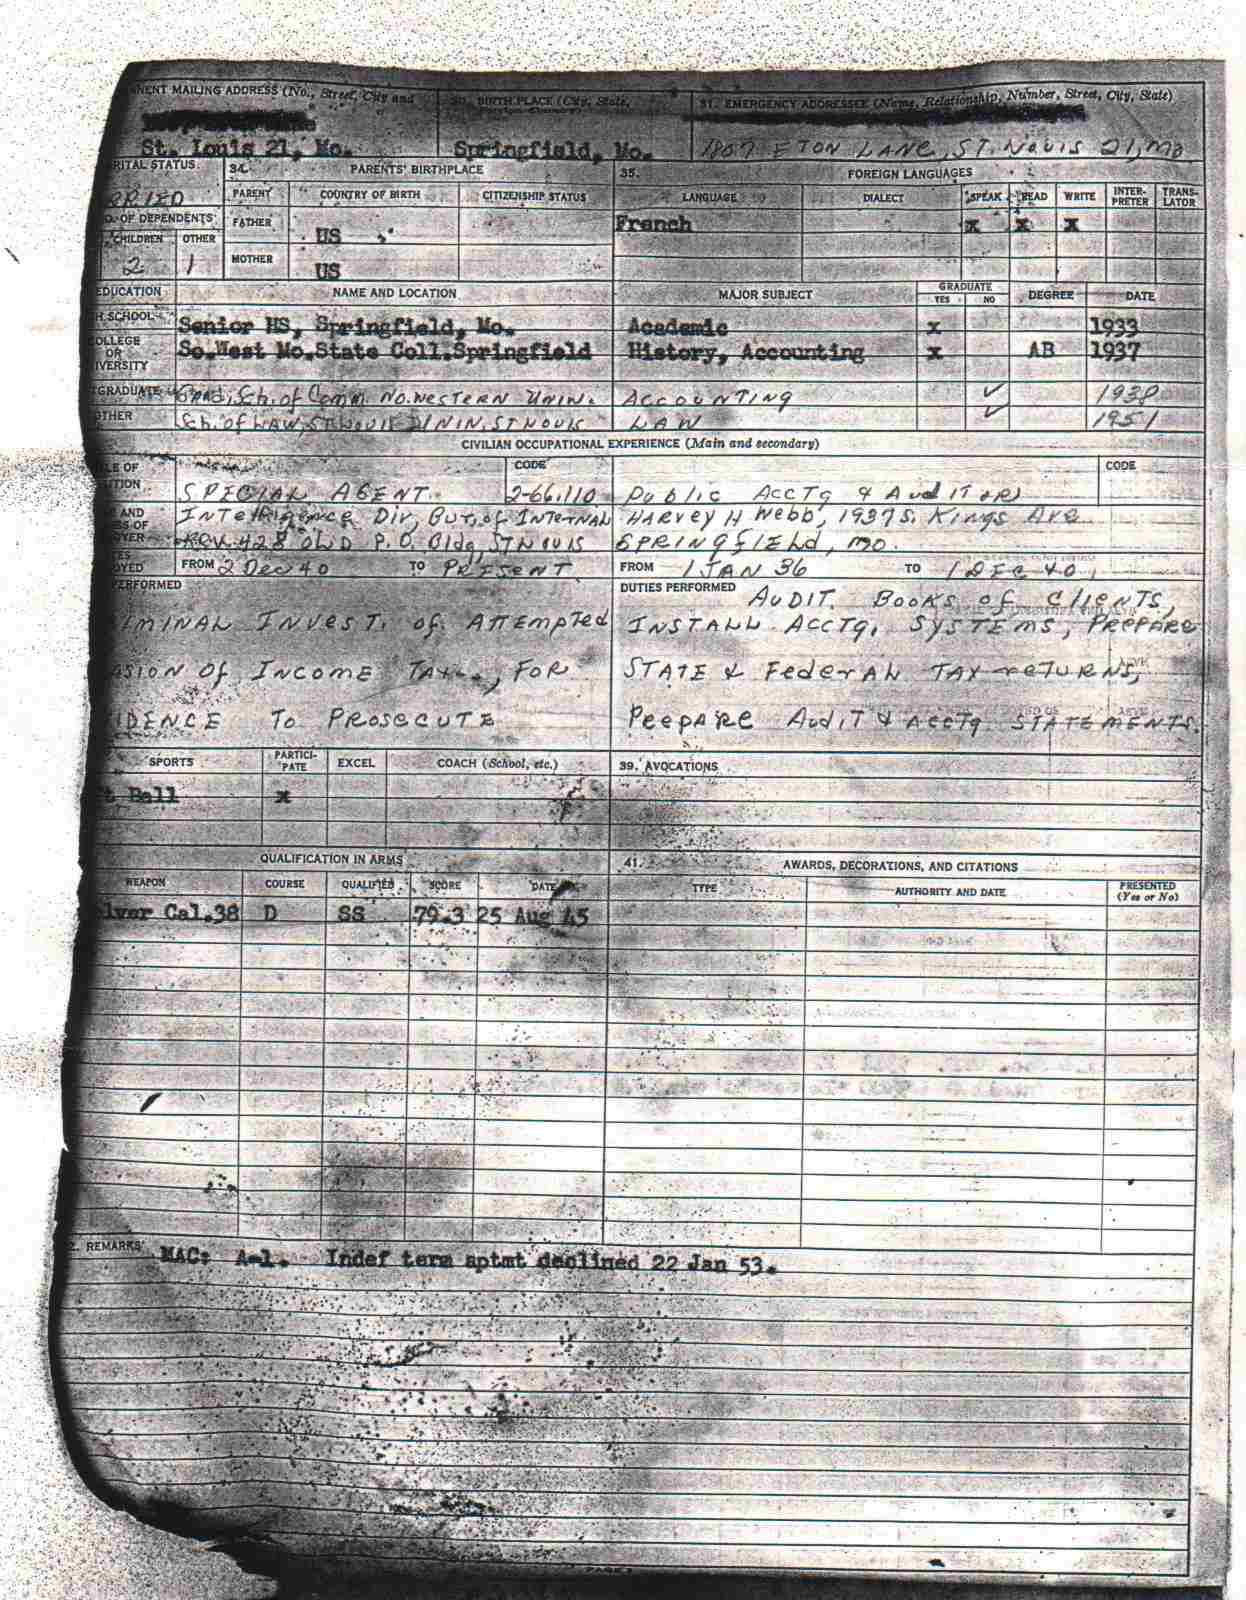 NENT MAILING ADDRESS (No., Street, City and
BIRTH PLACE (City, State,
31. EMERGENCY ADDRESSEE (Name, Relationship, Number, Street, City, State)
St. Louis 21, Mo.
Springfield, Mo.
1807 ETON LANE, ST. LOUIS 21, MO
RITAL STATUS
34. PARENTS' BIRTHPLACE
35. FOREIGN LANGUAGES
RRIED
PARENT COUNTRY OF BIRTH CITIZENSHIP STATUS
LANGUAGE DIALECT SPEAK READ WRITE INTER-PRETER TRANS-LATOR
O. OF DEPENDENTS
CHILDREN OTHER
2 1
FATHER US
MOTHER US
French x x x
EDUCATION NAME AND LOCATION MAJOR SUBJECT GRADUATE YES NO DEGREE DATE
H SCHOOL Senior HS, Springfield, Mo. Academic x 1933
COLLEGE OR IVERSITY So.West Mo.State Coll.Springfield History, Accounting x AB 1937
TGRADUATE Grad. Sch. of Comm. No. Western Univ. ACCOUNTING ✓ 1938
OTHER Sch. of LAW, ST LOUIS UNIV, ST LOUIS LAW ✓ 1951
CIVILIAN OCCUPATIONAL EXPERIENCE (Main and secondary)
LE OF
SPECIAL AGENT CODE 2-66.110 Public Acctg & Auditor CODE
Intelligence Div, Bur. of Internal
Rev 428 OLD P.O. Bldg, ST LOUIS
HARVEY H Webb, 1937 S. Kings Ave
SPRINGFIELD, MO.
FROM 2 Dec 40 TO PRESENT
FROM 1 JAN 36 TO 1 DEC 40
PERFORMED
IMINAL INVEST. of ATTEMPTED
ASION OF INCOME TAX, FOR
IDENCE TO PROSECUTE
DUTIES PERFORMED AUDIT BOOKS of CLIENTS,
INSTALL ACCTG. SYSTEMS, PREPARE
STATE & Federal TAX returns,
PREPARE AUDIT & ACCTG STATEMENTS.
SPORTS PARTICI-PATE EXCEL COACH (School, etc.)
39. AVOCATIONS
t Ball x
QUALIFICATION IN ARMS
41. AWARDS, DECORATIONS, AND CITATIONS
WEAPON COURSE QUALIFIED SCORE DATE
TYPE AUTHORITY AND DATE PRESENTED (Yes or No)
lver Cal.38 D SS 79.3 25 Aug 45
2. REMARKS MAC: A-1. Indef term aptmt declined 22 Jan 53.